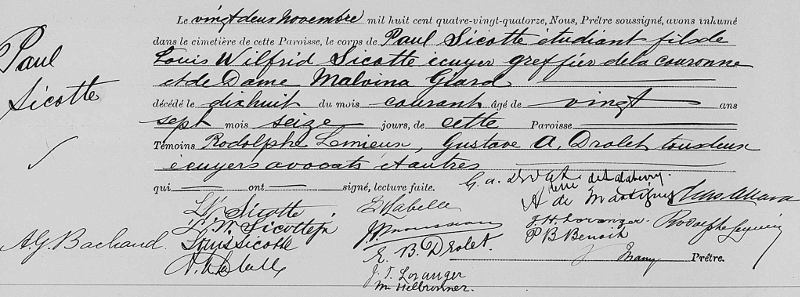 Paul
Sicotte
Le vingt deux novembre mil huit cent quatre-vingt-quatorze, Nous, Prêtre soussigné, avons inhumé
dans le cimetière de cette Paroisse, le corps de Paul Sicotte étudiant fils de
Louis Wilfrid Sicotte écuyer greffier de la couronne
et de Dame Malvina Giard
décédé le dixhuit du mois courant âgé de vingt ans
sept mois seize jours, de cette Paroisse
Témoins Rodolphe Lemieux, Gustave A, Drolet tous deux
écuyers avocats et autres
qui ont signé, lecture faite. G. A. Drolet
A de Martigny
L W Sicotte E Labelle
J. H. Loranger. Rodolphe Lemieux
P B Benoit
A. G. Bachand E. B. Drolet.
Prêtre.
J. T. Loranger
M Helbronner.